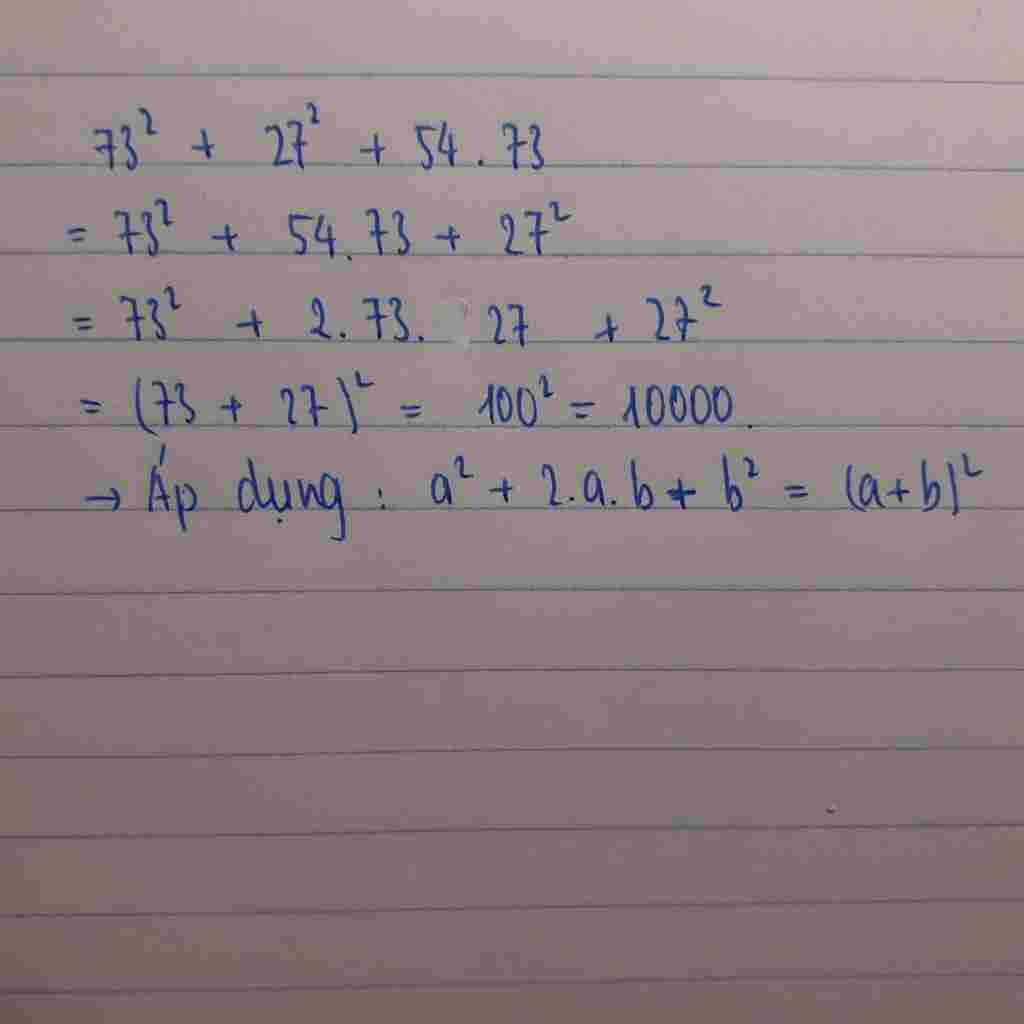 73² + 27² + 54 . 73
= 73² + 54 . 73 + 27²
= 73² + 2 . 73 . 27 + 27²
= (73 + 27)² = 100² = 10000.
→ Áp dụng : a² + 2.a.b + b² = (a+b)²